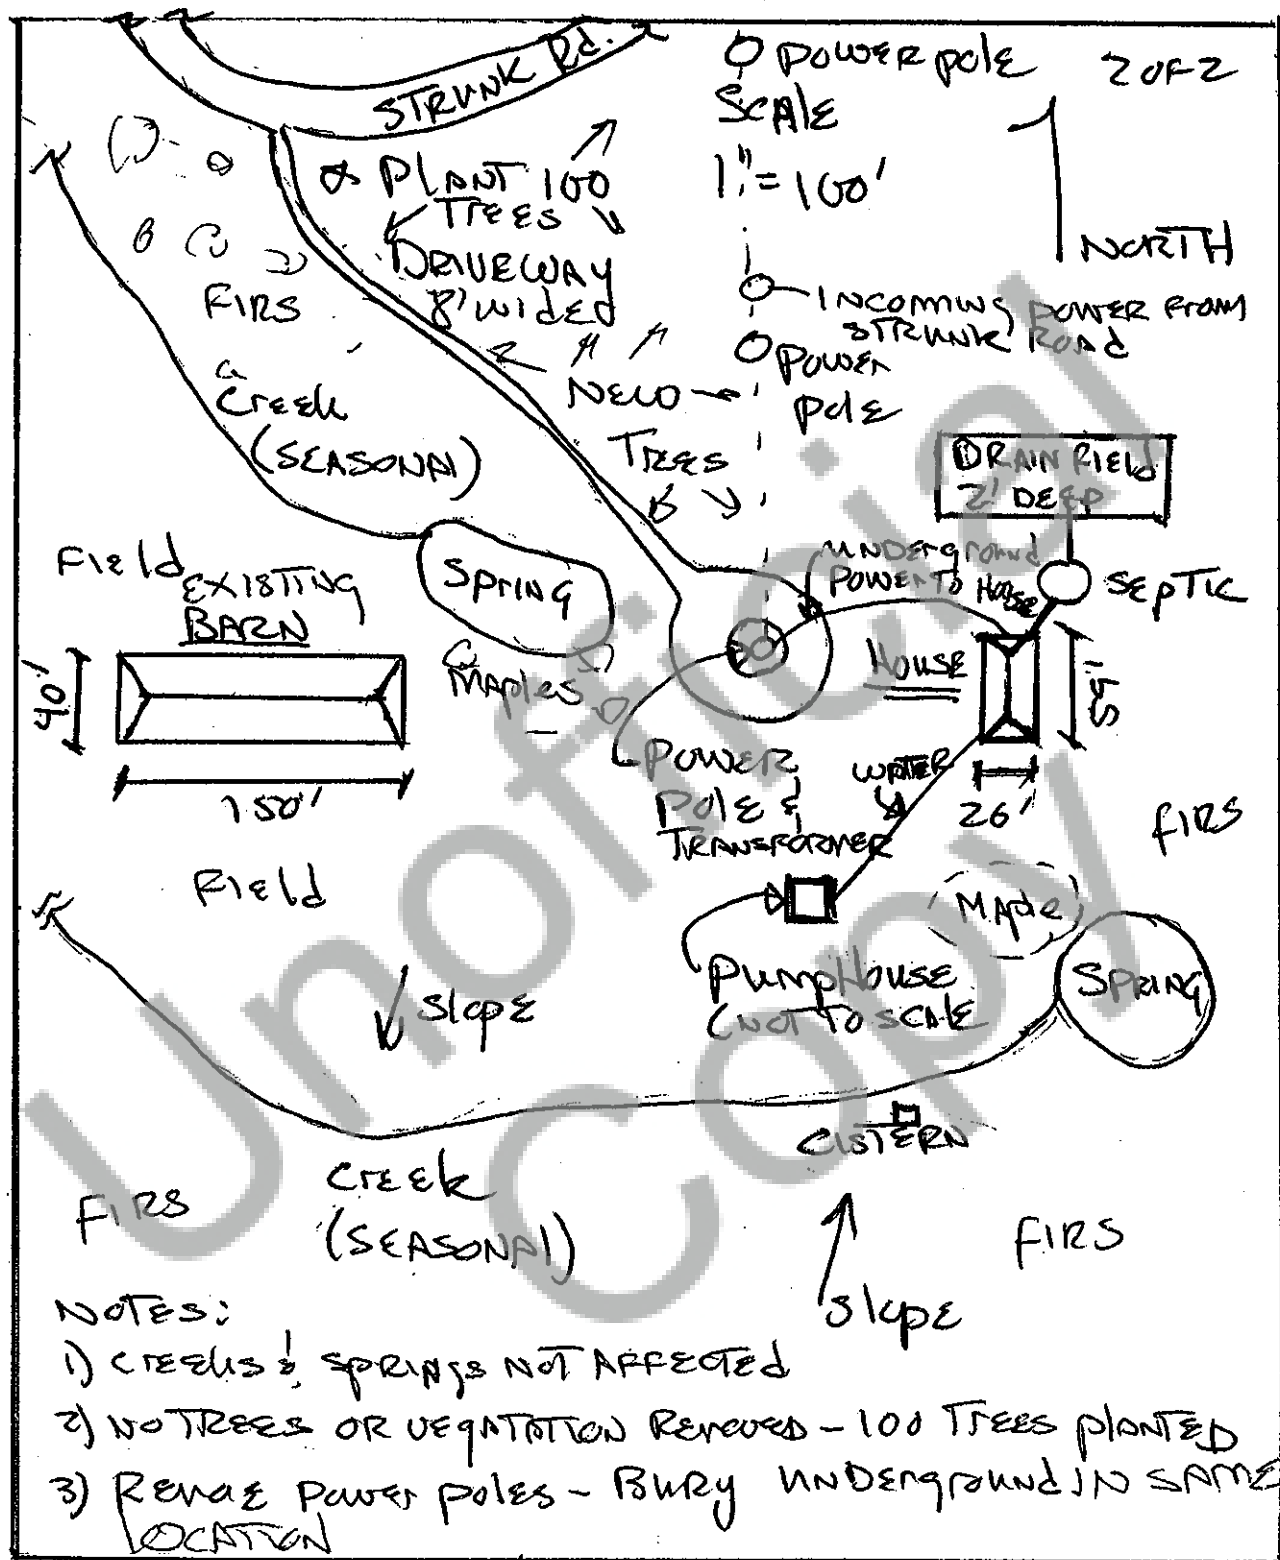 STRUNK Rd.
POWER pole
2 OF 2
SCALE
1" = 100'
NORTH
PLANT 100
TREES
DRIVEWAY
8' WIDED
FIRS
INCOMING POWER FROM
STRUNK ROAD
POWER
pole
NEW
TREES
Creek
(SEASONAl)
DRAIN FIELD
2' DEEP
SEPTIC
UNDERground
POWER TO HOUSE
Field
EXISTING
BARN
Spring
MAPlES
40'
150'
HOUSE
26'
POWER
POLE &
TRANSFORMER
WATER
FIRS
Field
MAPlE
SPRING
PUMPHOUSE
(NOT TO SCALE
SlOPE
CISTERN
Creek
(SEASONAl)
FIRS
FIRS
SlOPE
NOTES:
1) CREEKS & SPRINGS NOT AFFECTED
2) NO TREES OR VEGATATION REMOVED - 100 TREES PlANTED
3) REMOVE POWER POLES - BURY UNDERground IN SAME
LOCATION
Unofficial
Copy